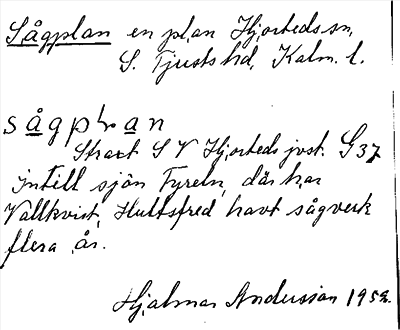 Sågplan en plan Hjorteds sn,
S. Tjusts hd, Kalm. l.
sågplan
Strax S V Hjorteds jvst. G37
intill sjön Tyreln, där har
Vallkvist, Hultsfred havt sågverk
flera år.
Hjalmar Andersson 1952.